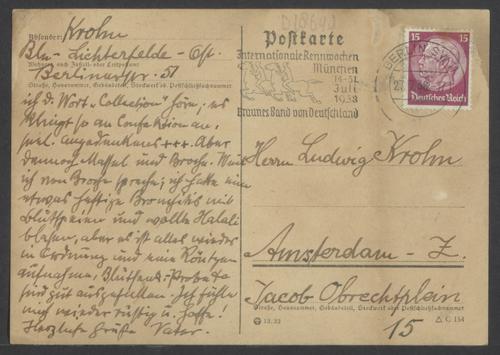 D18642
Absender: Krohn
Bln-Lichterfelde-Ost.
Wohnort, auch Zustell- oder Leitpostamt
Berlinerstr. 51
Straße, Hausnummer, Gebäudeteil, Stockwerk od. Postschließfachnummer
ich d. Wort „Collection" höre; es
klingt so an Confektion an.
viel. Angedenkens +++. Aber
dennoch Massel und Broche. Weil
ich von Broche spreche; ich hatte eine
etwas heftige Bronchitis mit
Blutspeien und wollte Halali
blasen, aber es ist alles wieder
in Ordnung und eine Röntgen
aufnahme, Blutsenk. Probe etc
sind gut ausgefallen. Ich fühle
mich wieder rüstig u. hoffe!
Herzliche Grüße Vater.
Postkarte
Internationale Rennwochen
München
14-31.
Juli
1938
Braunes Band von Deutschland
BERLIN SW
15 15
Deutsches Reich
Herrn Ludwig Krohn
Amsterdam - Z.
Jacob Obrechtplein
Straße, Hausnummer, Gebäudeteil, Stockwerk oder Postschließfachnummer
15
C 154